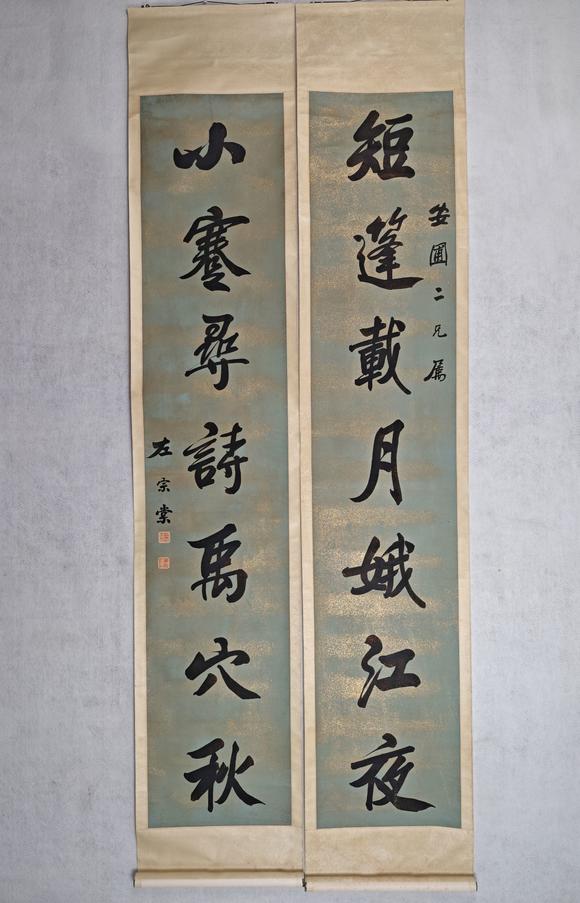 短篷載月娥江夜
安圃二兄属
小蹇尋詩禹穴秋
左宗棠